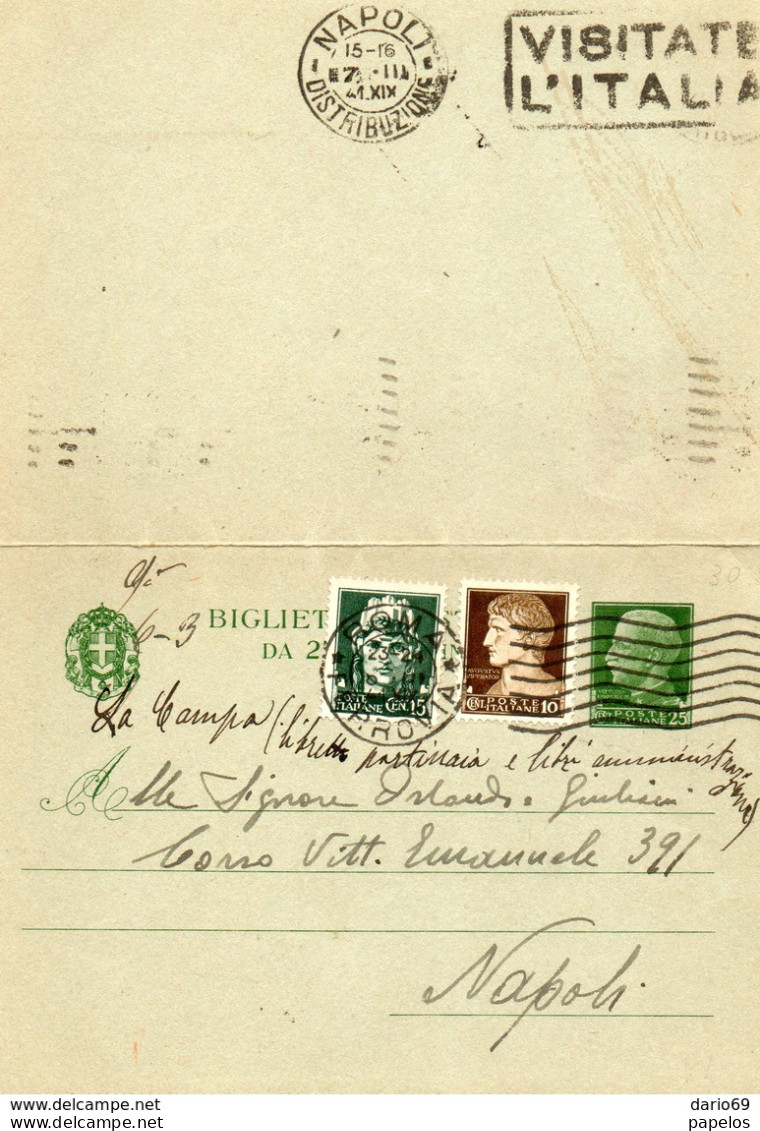 NAPOLI
15-16
7 - III
41.XIX
DISTRIBUZIONE
VISITATE
L'ITALIA
30
6-3
BIGLIET
DA 2
IN
ROMA
FERROVIA
23-24
POSTE
ITALIANE
CEN. 15
AVGVSTVS
IMPERATOR
CENT.
POSTE
ITALIANE
10
CENT.
POSTE
ITALIANE
25
La Campa (libretto portinaia e libri amministrazione)
Alle Signore Orlando e Giuliani
Corso Vitt. Emanuele 391
Napoli
dario69
papelos